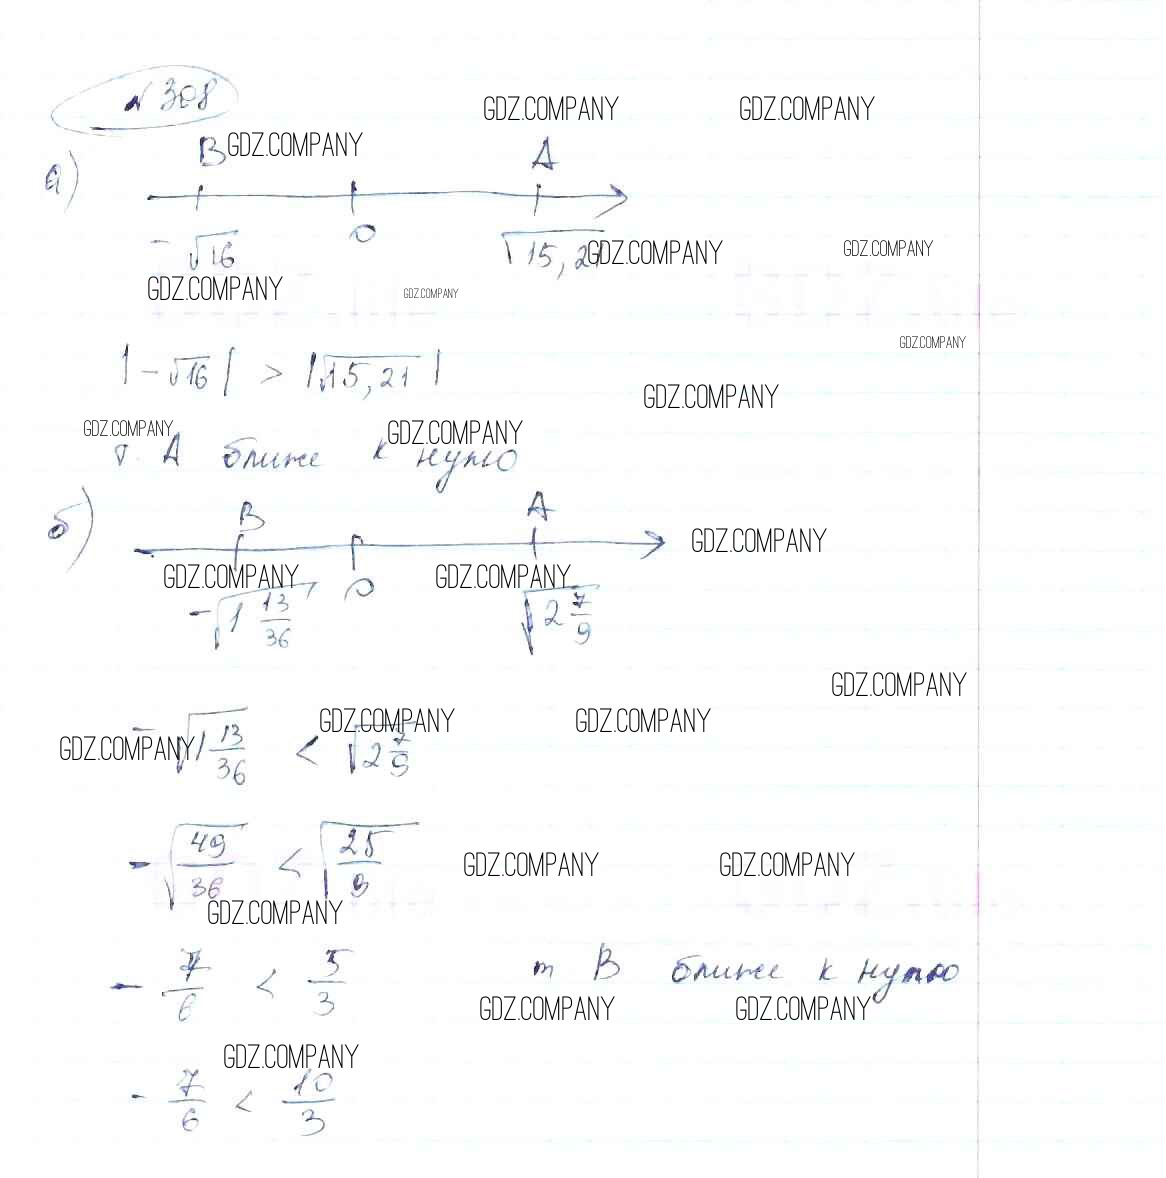 № 308
GDZ.COMPANY GDZ.COMPANY
а) B GDZ.COMPANY A
-√16 0 √15,21 GDZ.COMPANY GDZ.COMPANY
GDZ.COMPANY GDZ.COMPANY
GDZ.COMPANY
|-√16| > |√15,21| GDZ.COMPANY
GDZ.COMPANY GDZ.COMPANY
т. A ближе к нулю
б) B A
GDZ.COMPANY
GDZ.COMPANY GDZ.COMPANY
-√1 13/36 0 √2 7/9
GDZ.COMPANY
GDZ.COMPANY GDZ.COMPANY
GDZ.COMPANY -√1 13/36 < √2 7/9
-√49/36 < √25/9 GDZ.COMPANY GDZ.COMPANY
GDZ.COMPANY
-7/6 < 5/3 т B ближе к нулю
GDZ.COMPANY GDZ.COMPANY
GDZ.COMPANY
-7/6 < 10/3